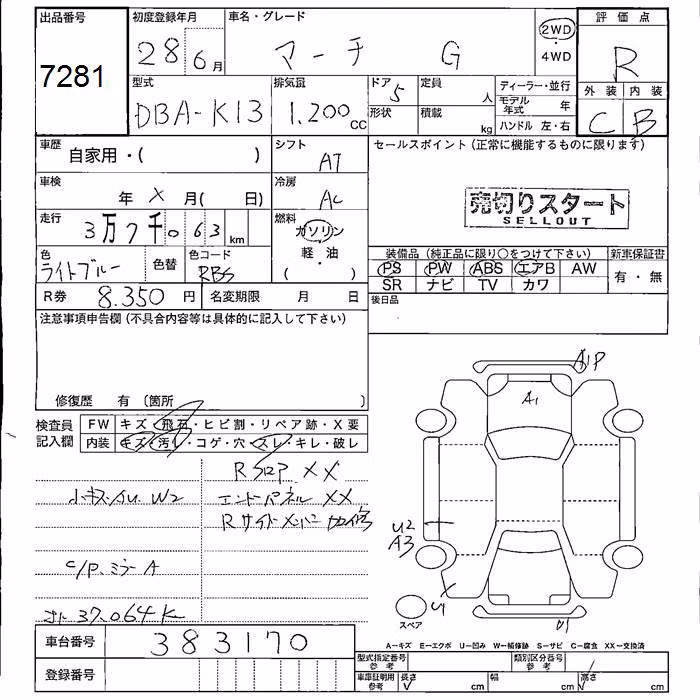 出品番号 初度登録年月 車名・グレード 評価点
7281 28 6月 マーチ G 2WD ・ 4WD R
型式 排気量 ドア 定員 ディーラー・並行 外装 内装
DBA-K13 1.200cc 5 人 モデル年式 年 C B
形状 積載 kg ハンドル 左・右
車歴 自家用・( ) シフト AT セールスポイント(正常に機能するものに限ります)
車検 年 X 月( 日) 冷房 AC
売切りスタート
SELLOUT
走行 3万7千063km 燃料 ガソリン
軽・油
( )
色 ライトブルー 色替 色コード RBS
装備品(純正品に限り○をつけて下さい) 新車保証書
PS PW ABS エアB AW 有・無
SR ナビ TV カワ
R券 8.350円 名変期限 月 日 後日品
注意事項申告欄(不具合内容等は具体的に記入して下さい)
修復歴 有 〔箇所 〕
検査員記入欄 FW キズ・飛石・ヒビ割・リペア跡・X要
内装 キズ・汚れ・コゲ・穴・スレ・キレ・破レ
Rフロア XX
小キズ・AU. W2 エンドパネル XX
Rサイドメンバー
C/P. ミラーA
37.064K
A1P
A1
U2
A3
U1
スペア
U1
A=キズ E=エクボ U=凹み W=補修跡 S=サビ C=腐食 XX=交換済
車台番号 383170
登録番号
型式指定番号 参考 類別区分番号 参考
車庫証明用 参考 長さ cm 幅 cm 高さ cm